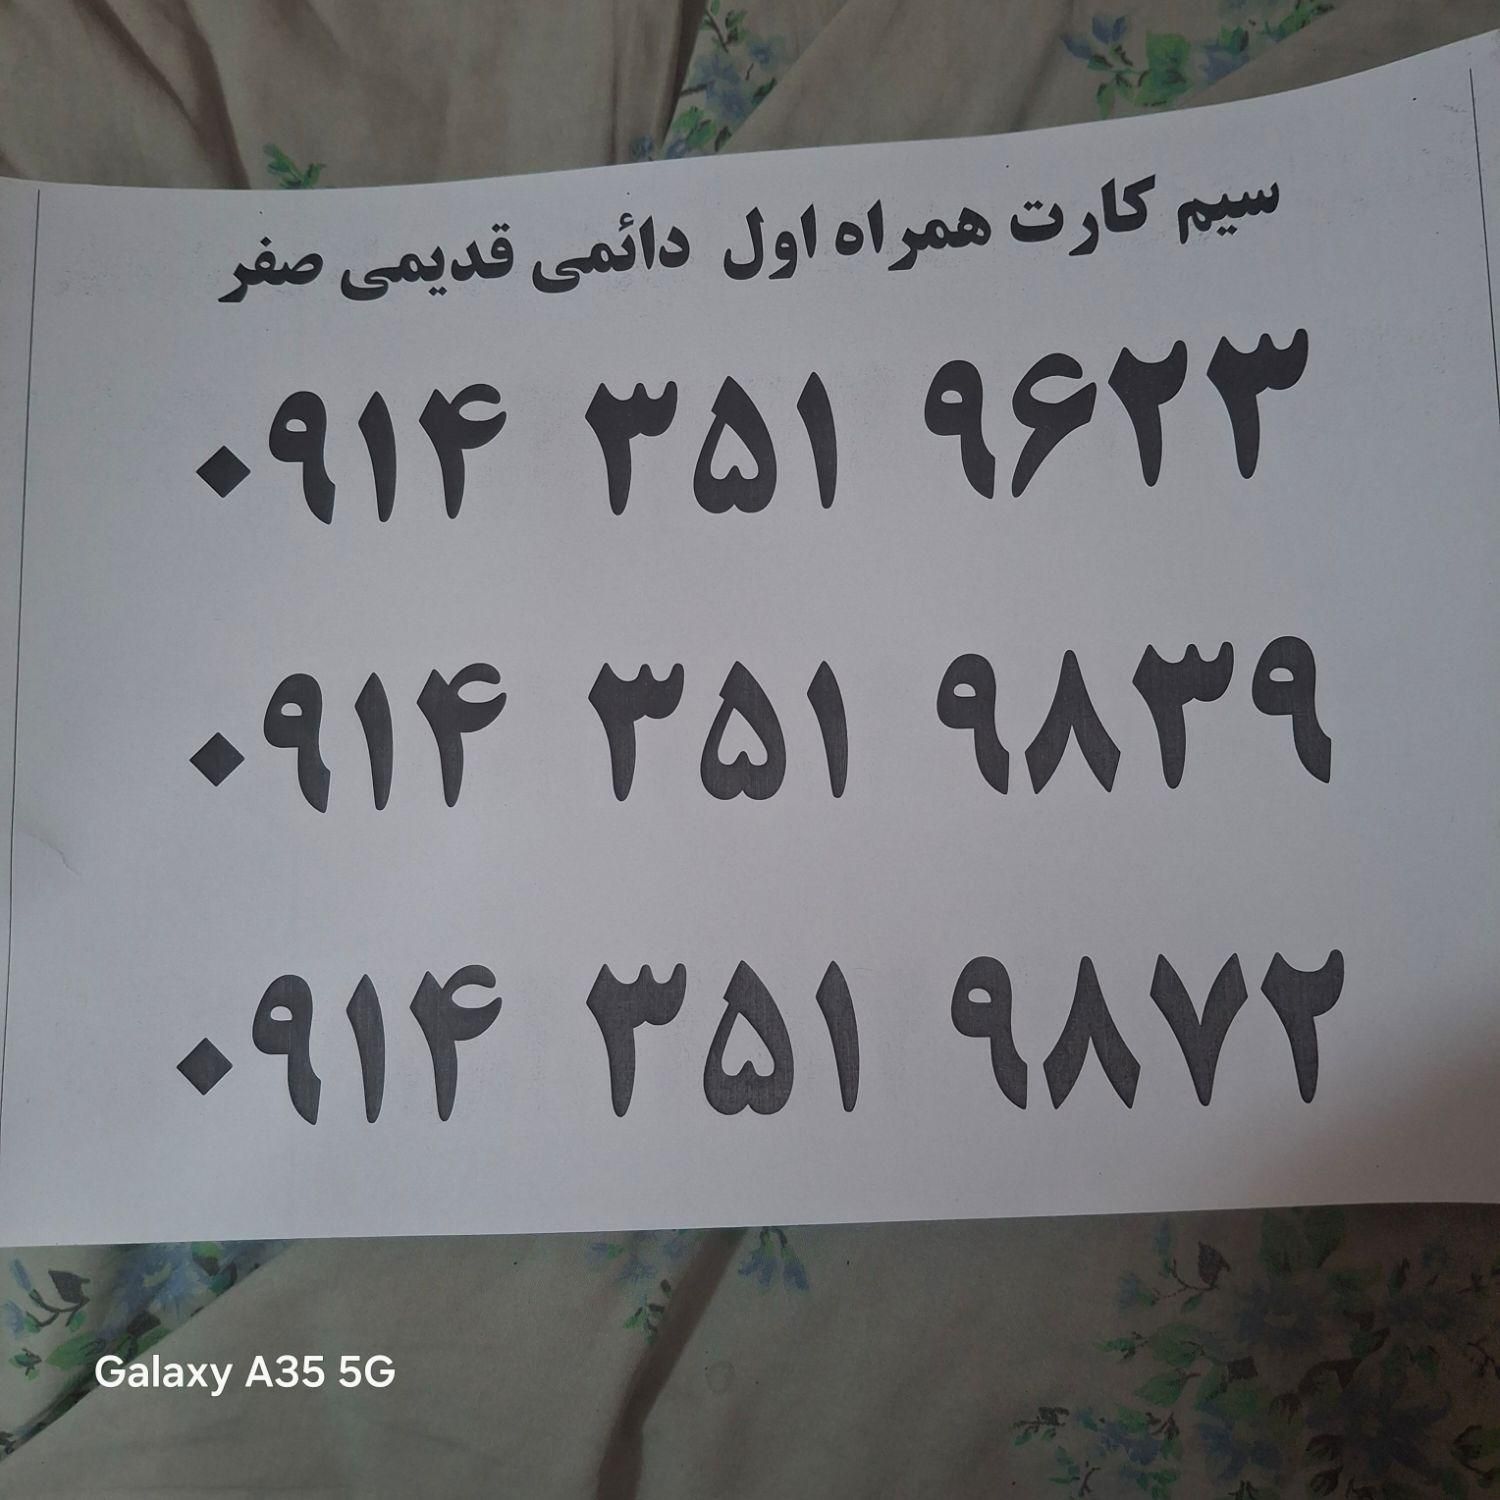 سیم کارت همراه اول دائمی قدیمی صفر
۰۹۱۴ ۳۵۱ ۹۶۲۳
۰۹۱۴ ۳۵۱ ۹۸۳۹
۰۹۱۴ ۳۵۱ ۹۸۷۲
Galaxy A35 5G